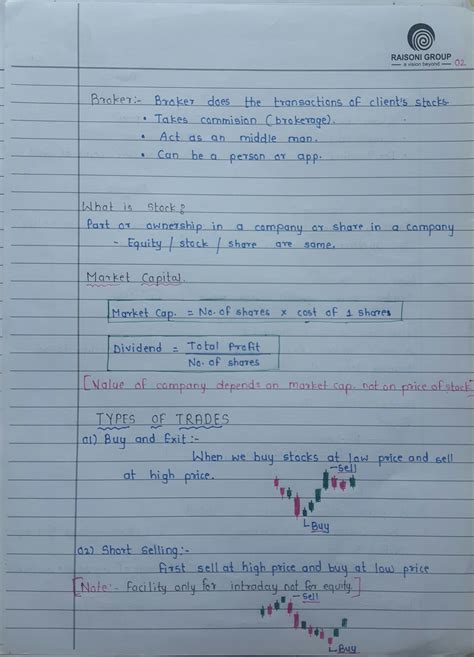 RAISONI GROUP
a vision beyond
02
Broker:- Broker does the transactions of client's stocks
• Takes commision (brokerage).
• Act as an middle man.
• Can be a person or app.
What is Stock?
Part or ownership in a company or share in a company
- Equity / stock / share are same.
Market Capital.
Market Cap. = No. of shares x cost of 1 shares
Dividend = Total Profit
No. of shares
[Value of company depends on market cap. not on price of stock]
TYPES OF TRADES
01) Buy and Exit :-
When we buy stocks at low price and sell
at high price.
Sell
Buy
02) Short Selling:-
First sell at high price and buy at low price
[Note:- Facility only for intraday not for equity.]
Sell
Buy